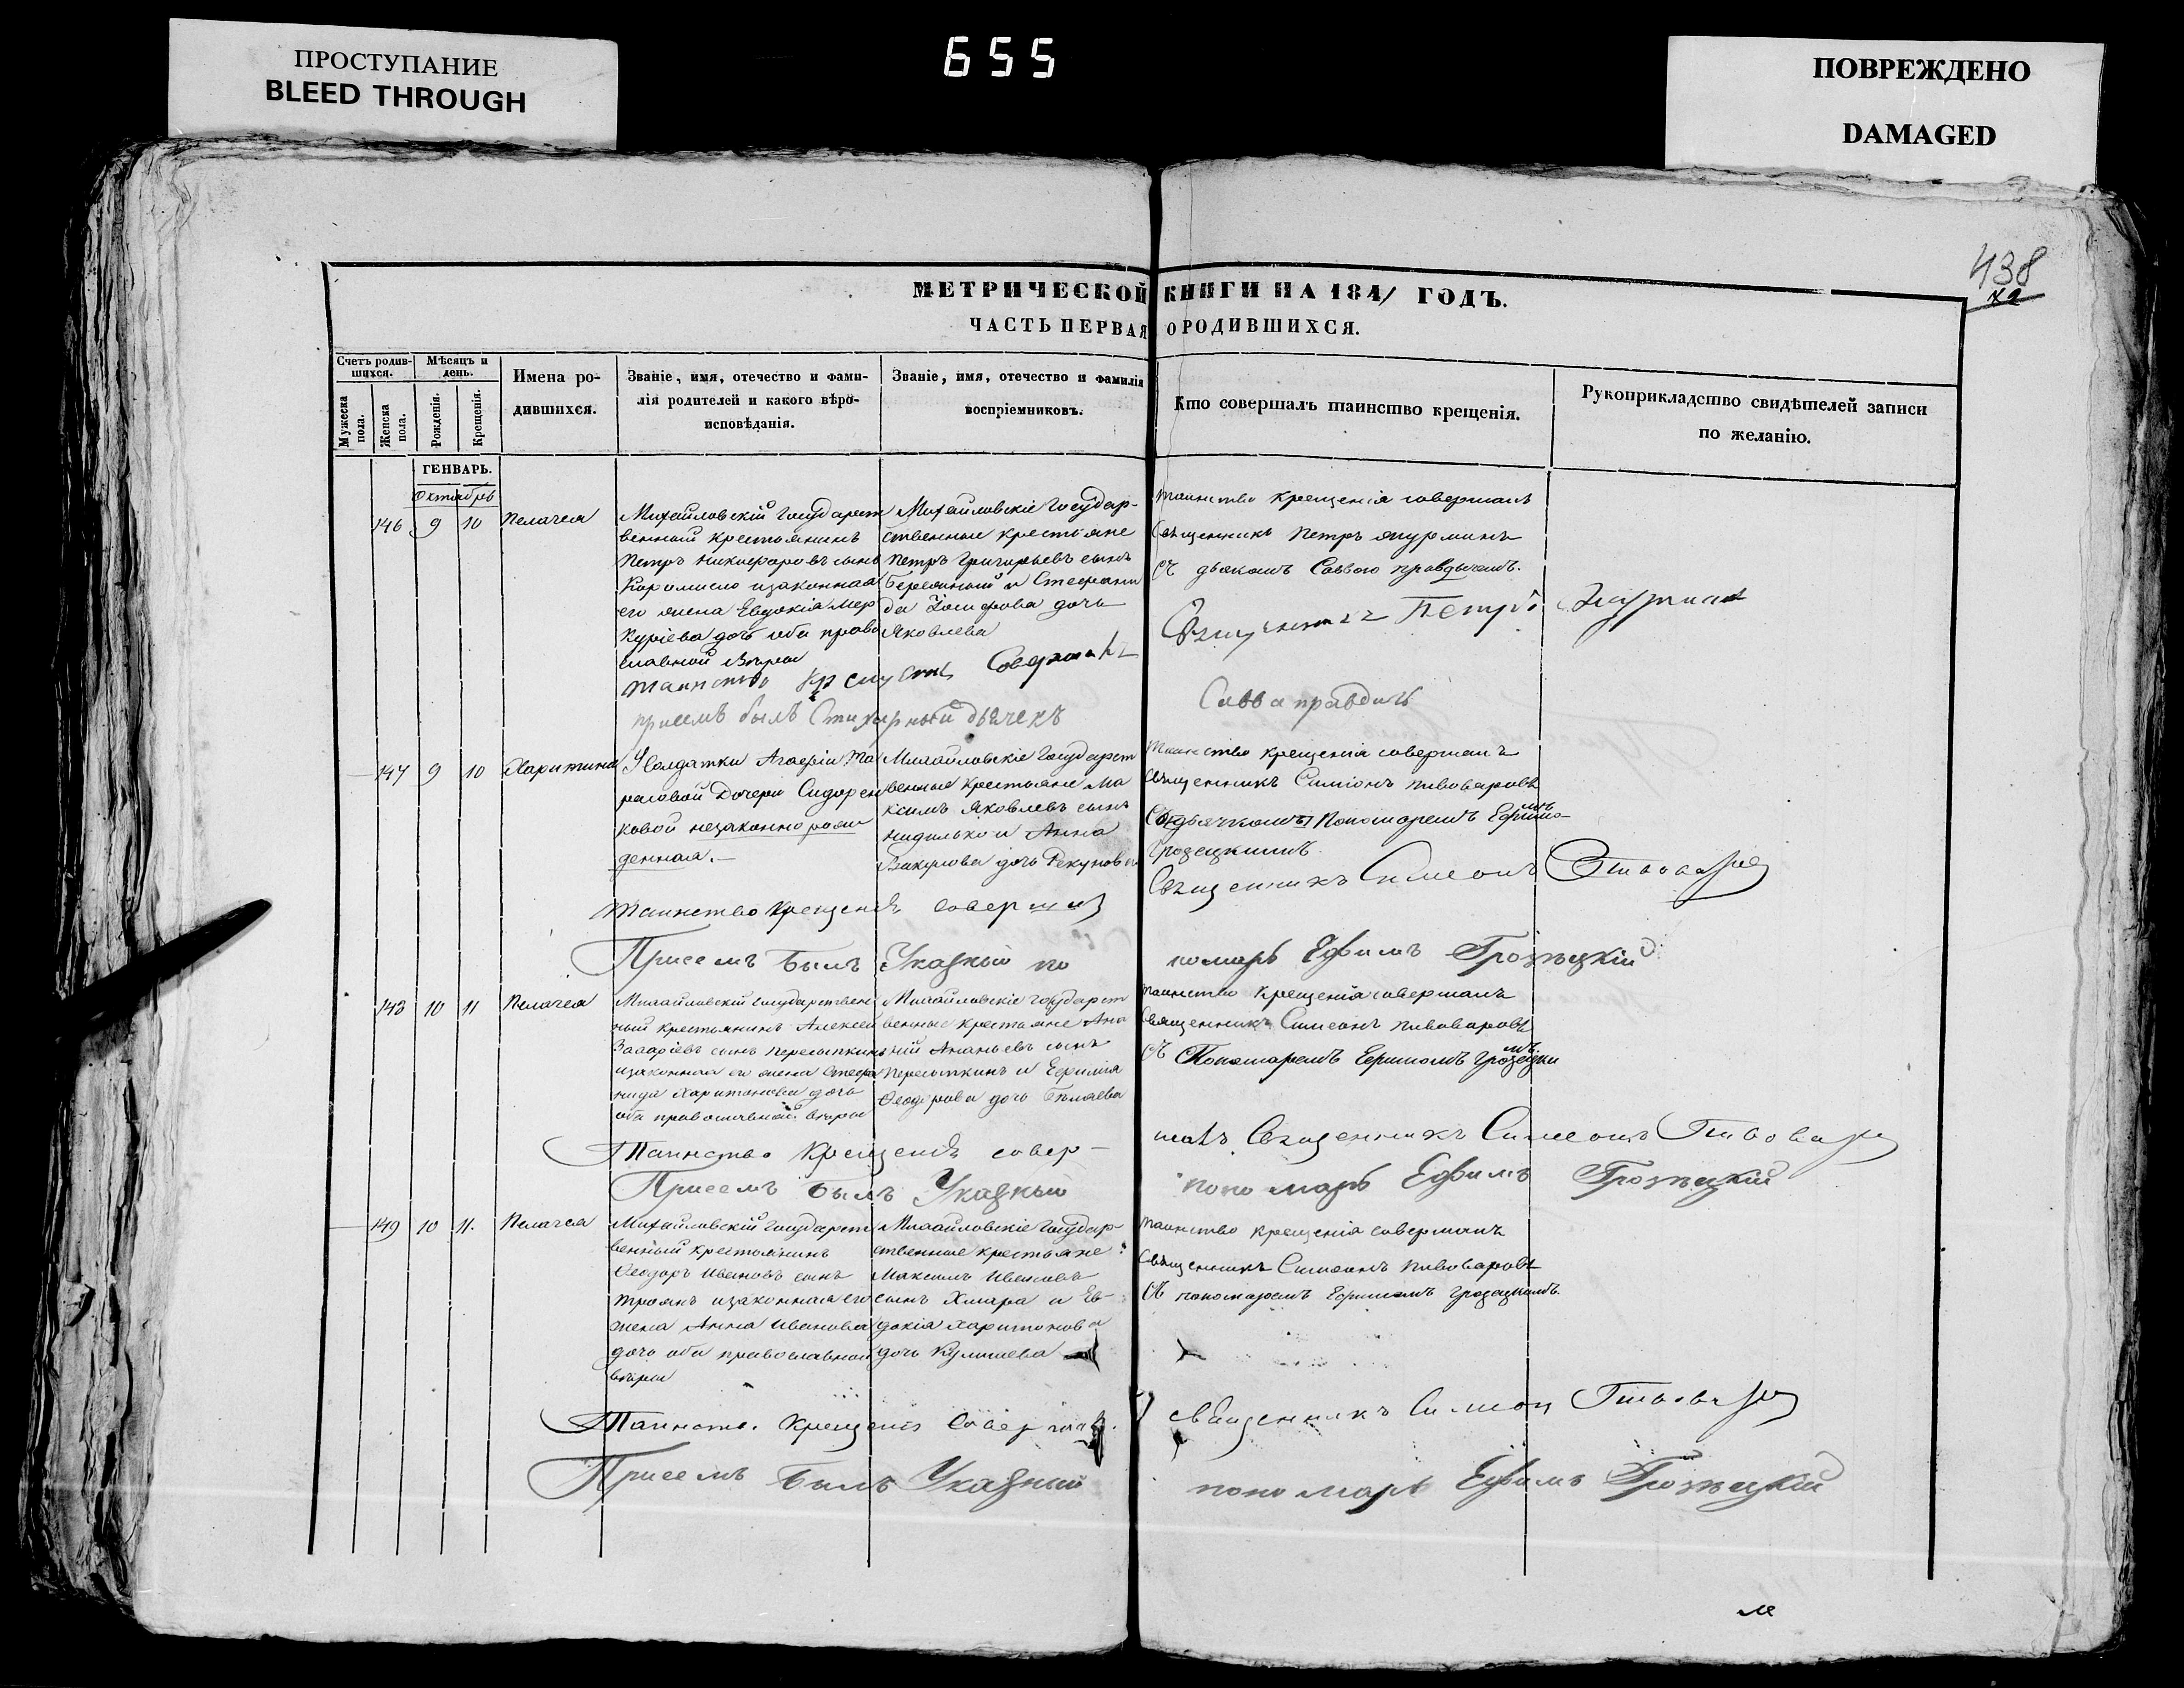 ПРОСТУПАНИЕ
BLEED THROUGH
655
ПОВРЕЖДЕНО
DAMAGED
438
МЕТРИЧЕСКОЙ КНИГИ НА 1841 ГОДЪ.
ЧАСТЬ ПЕРВАЯ О РОДИВШИХСЯ.
Счетъ родив-
шихся.
Мужеска пола.
Женска пола.
Мѣсяцъ и
день.
Рожденія.
Крещенія.
Имена ро-
дившихся.
Званіе, имя, отечество и фами-
лія родителей и какого вѣро-
исповѣданія.
Званіе, имя, отечество и фамилія
воспріемниковъ.
Кто совершалъ таинство крещенія.
Рукоприкладство свидѣтелей записи
по желанію.
ГЕНВАРЬ.
Октябрь
146 9 10 Пелагея
Михайловскій Государст
венный крестьянинъ
Петръ Никифоровъ сынъ
Коромысло изаконная
его жена Евдокія Мер
куріева дочь оба право
славной вѣры
Михайловскіе Государ-
ственные крестьяне
Петръ Григорьевъ сынъ
и Стефани
да дочь
Яковлева
таинство крещенія совершалъ
Священникъ Петръ
съ дьякомъ Саввою правдичемъ.
Таинство Крещенія Совершалъ
Священникъ Петръ
присемъ былъ Стихарный дьячекъ
Савва правдичь
147 9 10 Харитина
У Солдатки Агафіи Та
расовой Дочери Сидорен
ковой незаконнорож
денная.—
Михайловскіе Государст
венные крестьяне Ма
ксимъ Яковлевъ сынъ
и Анна
дочь
таинство крещенія совершалъ
священникъ Симіонъ пивоваровъ
Пономаремъ Ефимомъ
грозецкимъ.
Таинство Крещенія совершалъ
Священникъ Симеонъ Пивоваровъ
Присемъ былъ Указный по
номарь Ефимъ Грозецкій
148 10 11 Пелагея
Михайловскій государствен
ный крестьянинъ Алексей
Захаріевъ сынъ Пересыпкинъ
изаконная его жена Стефа
нида Харитонова дочь
оба православной вѣры
Михайловскіе государст
венные крестьяне Ана
ній Ананьевъ сынъ
Пересыпкинъ и Ефимія
Феодорова дочь Бѣляева
таинство крещенія совершалъ
священникъ Симеонъ пивоваровъ
съ Пономаремъ Ефимомъ грозецкимъ
Таинство Крещенія совер-
шалъ Священникъ Симеонъ Пивоваровъ
Присемъ былъ Указный
пономарь Ефимъ Грозецкій
149 10 11. Пелагея
Михайловскій государст
венный крестьянинъ
Феодоръ Ивановъ сынъ
Троянъ изаконная его
жена Анна Иванова
дочь оба православной
вѣры
Михайловскіе государ-
ственные крестьяне
Максимъ Ивановъ
сынъ Хмара и Ев-
докія Харитонова
дочь
таинство крещенія совершалъ
священникъ Симеонъ пивоваровъ
съ пономаремъ Ефимомъ грозецкимъ.
Таинство Крещенія Совершалъ
священникъ Симеонъ Пивоваровъ
Присемъ былъ Указный
пономарь Ефимъ Грозецкій